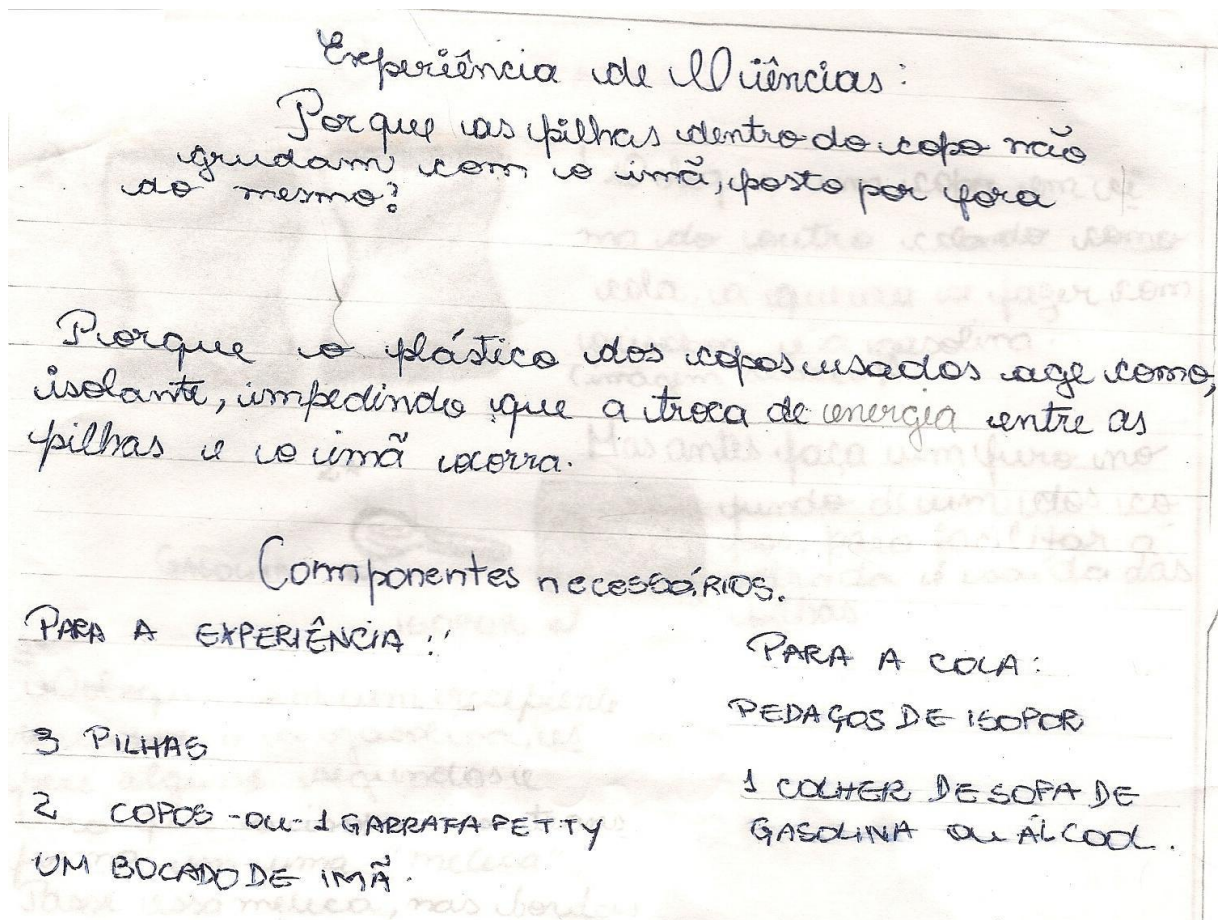 Experiência de Ciências:
Porque as pilhas dentro do copo não
grudam com o imã, posto por fora
do mesmo?
Porque o plástico dos copos usados age como,
isolante, impedindo que a troca de energia entre as
pilhas e o imã ocorra.
Componentes necessáRIOS.
PARA A EXPERIÊNCIA:
3 PILHAS
2 COPOS -OU- 1 GARRAFA PETTY
UM BOCADO DE IMÃ.
PARA A COLA:
PEDAÇOS DE ISOPOR
1 COLHER DE SOPA DE
GASOLINA OU ÁLCOOL.